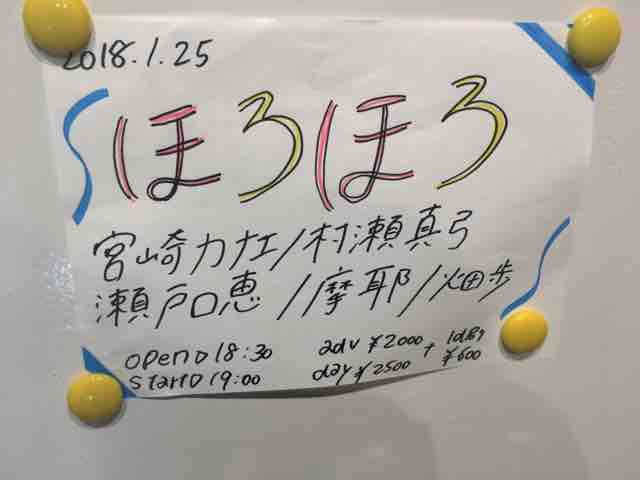 2018.1.25
ほろほろ
宮崎カナエ/村瀬真弓
瀬戸口恵/摩耶/畑歩
open 18:30 adv ¥2000 + 1drink
start 19:00 day ¥2500 ¥600